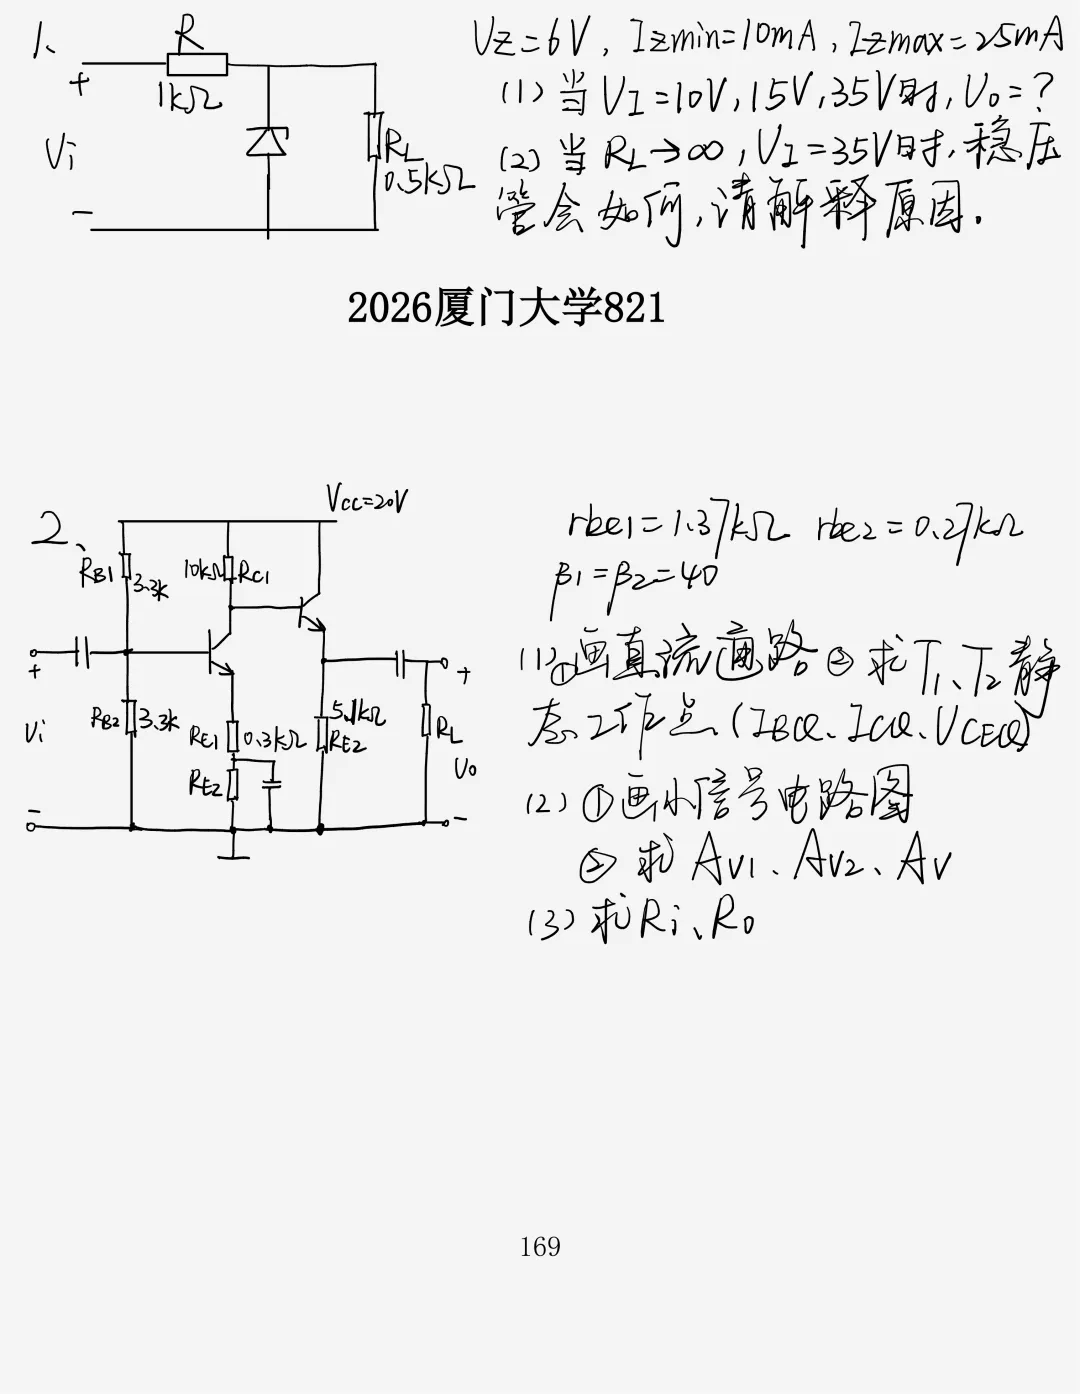 1、
R
1kΩ
+
Vi
-
RL
0.5kΩ
Uz=6V, Izmin=10mA, Izmax=25mA
(1) 当 UI=10V, 15V, 35V时, Uo=?
(2) 当 RL→∞, UI=35V时, 稳压
管会如何, 请解释原因.
2026厦门大学821
2、
Vcc=20V
RB1
3.3k
10kΩ
RC1
+
RB2
3.3k
Vi
RE1
0.3kΩ
RE2
5.1kΩ
RE2
RL
+
Uo
-
-
rbe1=1.37kΩ rbe2=0.27kΩ
β1=β2=40
(1)①画直流通路 ②求T1、T2静
态工作点(IBQ、ICQ、VCEQ)
(2) ①画小信号电路图
② 求 AV1、AV2、AV
(3) 求Ri、Ro
169